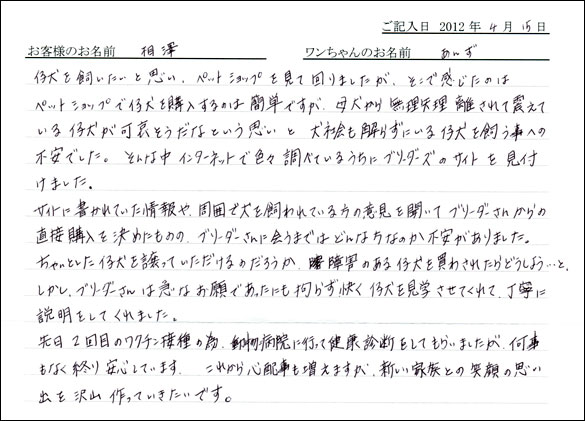 ご記入日 2012年4月15日
お客様のお名前 相澤 ワンちゃんのお名前 あんず
仔犬を飼いたいと思い、ペットショップを見て回りましたが、そこで感じたのは
ペットショップで仔犬を購入するのは簡単ですが、母犬から無理矢理離されて震えて
いる仔犬が可哀そうだなという思いと犬社会も解らずにいる仔犬を飼う事への
不安でした。そんな中インターネットで色々調べているうちにブリーダーズのサイトを見付
けました。
サイトに書かれていた情報や、周囲で犬を飼われている方の意見を聞いてブリーダーさんからの
直接購入を決めたものの、ブリーダーさんに会うまではどんな方なのか不安がありました。
ちゃんとした仔犬を譲っていただけるのだろうか、障害のある仔犬を買わされたらどうしよう…と。
しかし、ブリーダーさんは急なお願であったにも拘らず快く仔犬を見学させてくれて、丁寧に
説明をしてくれました。
先日2回目のワクチン接種の為、動物病院に行って健康診断をしてもらいましたが、何事
もなく終り安心しています。 これから心配事も増えますが、新しい家族との笑顔の思い
出を沢山作っていきたいです。